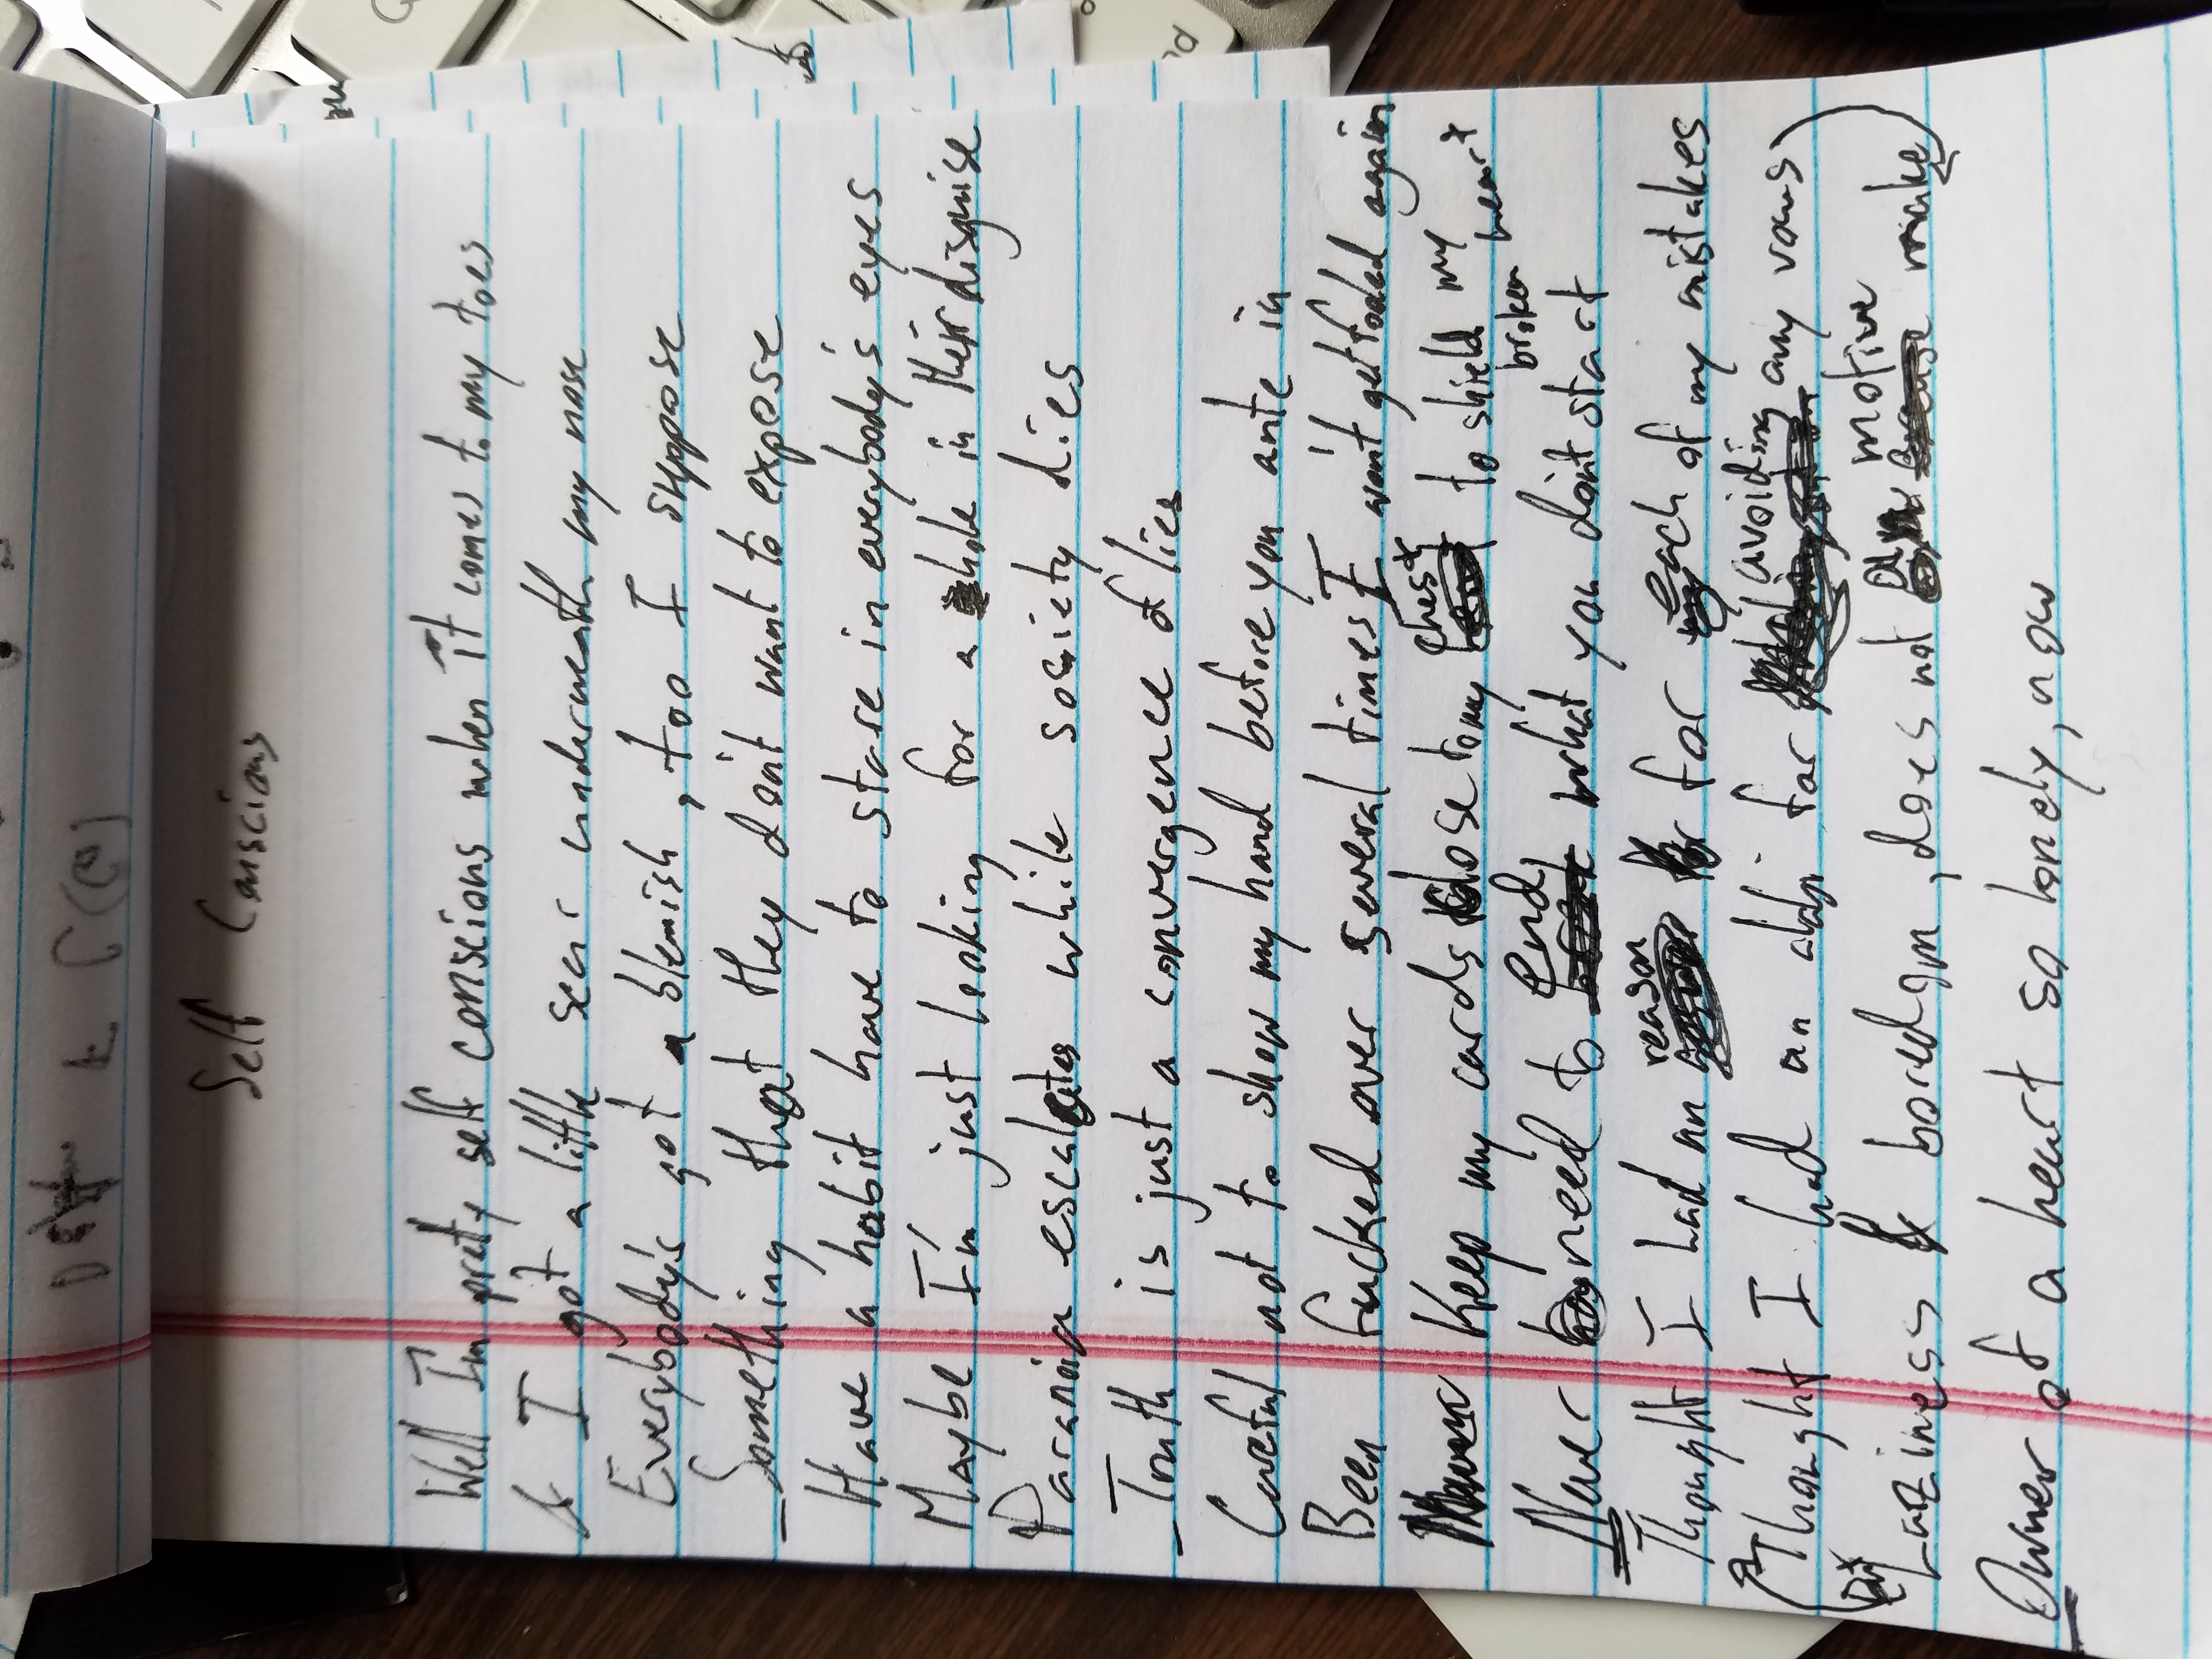 Self Conscious
Well I'm pretty self conscious when it comes to my toes
& I got a little scar underneath my nose
Everybody's got a blemish, too I suppose
Something that they don't want to expose
Have a habit have to stare in everybody's eyes
Maybe I'm just looking for a hole in their disguise
Paranoia escalates while society dies
Truth is just a convergence of lies
Careful not to show my hand before you ante in
Been fucked over several times I won't get fooled again
Keep my cards close to my chest to shield my
broken heart
Never need to end what you don't start
Thought I had an reason for each of my mistakes
Thought I had an alabi for avoiding any vows
But Laziness & boredom, does not a motive make
Owner of a heart so lonely, now